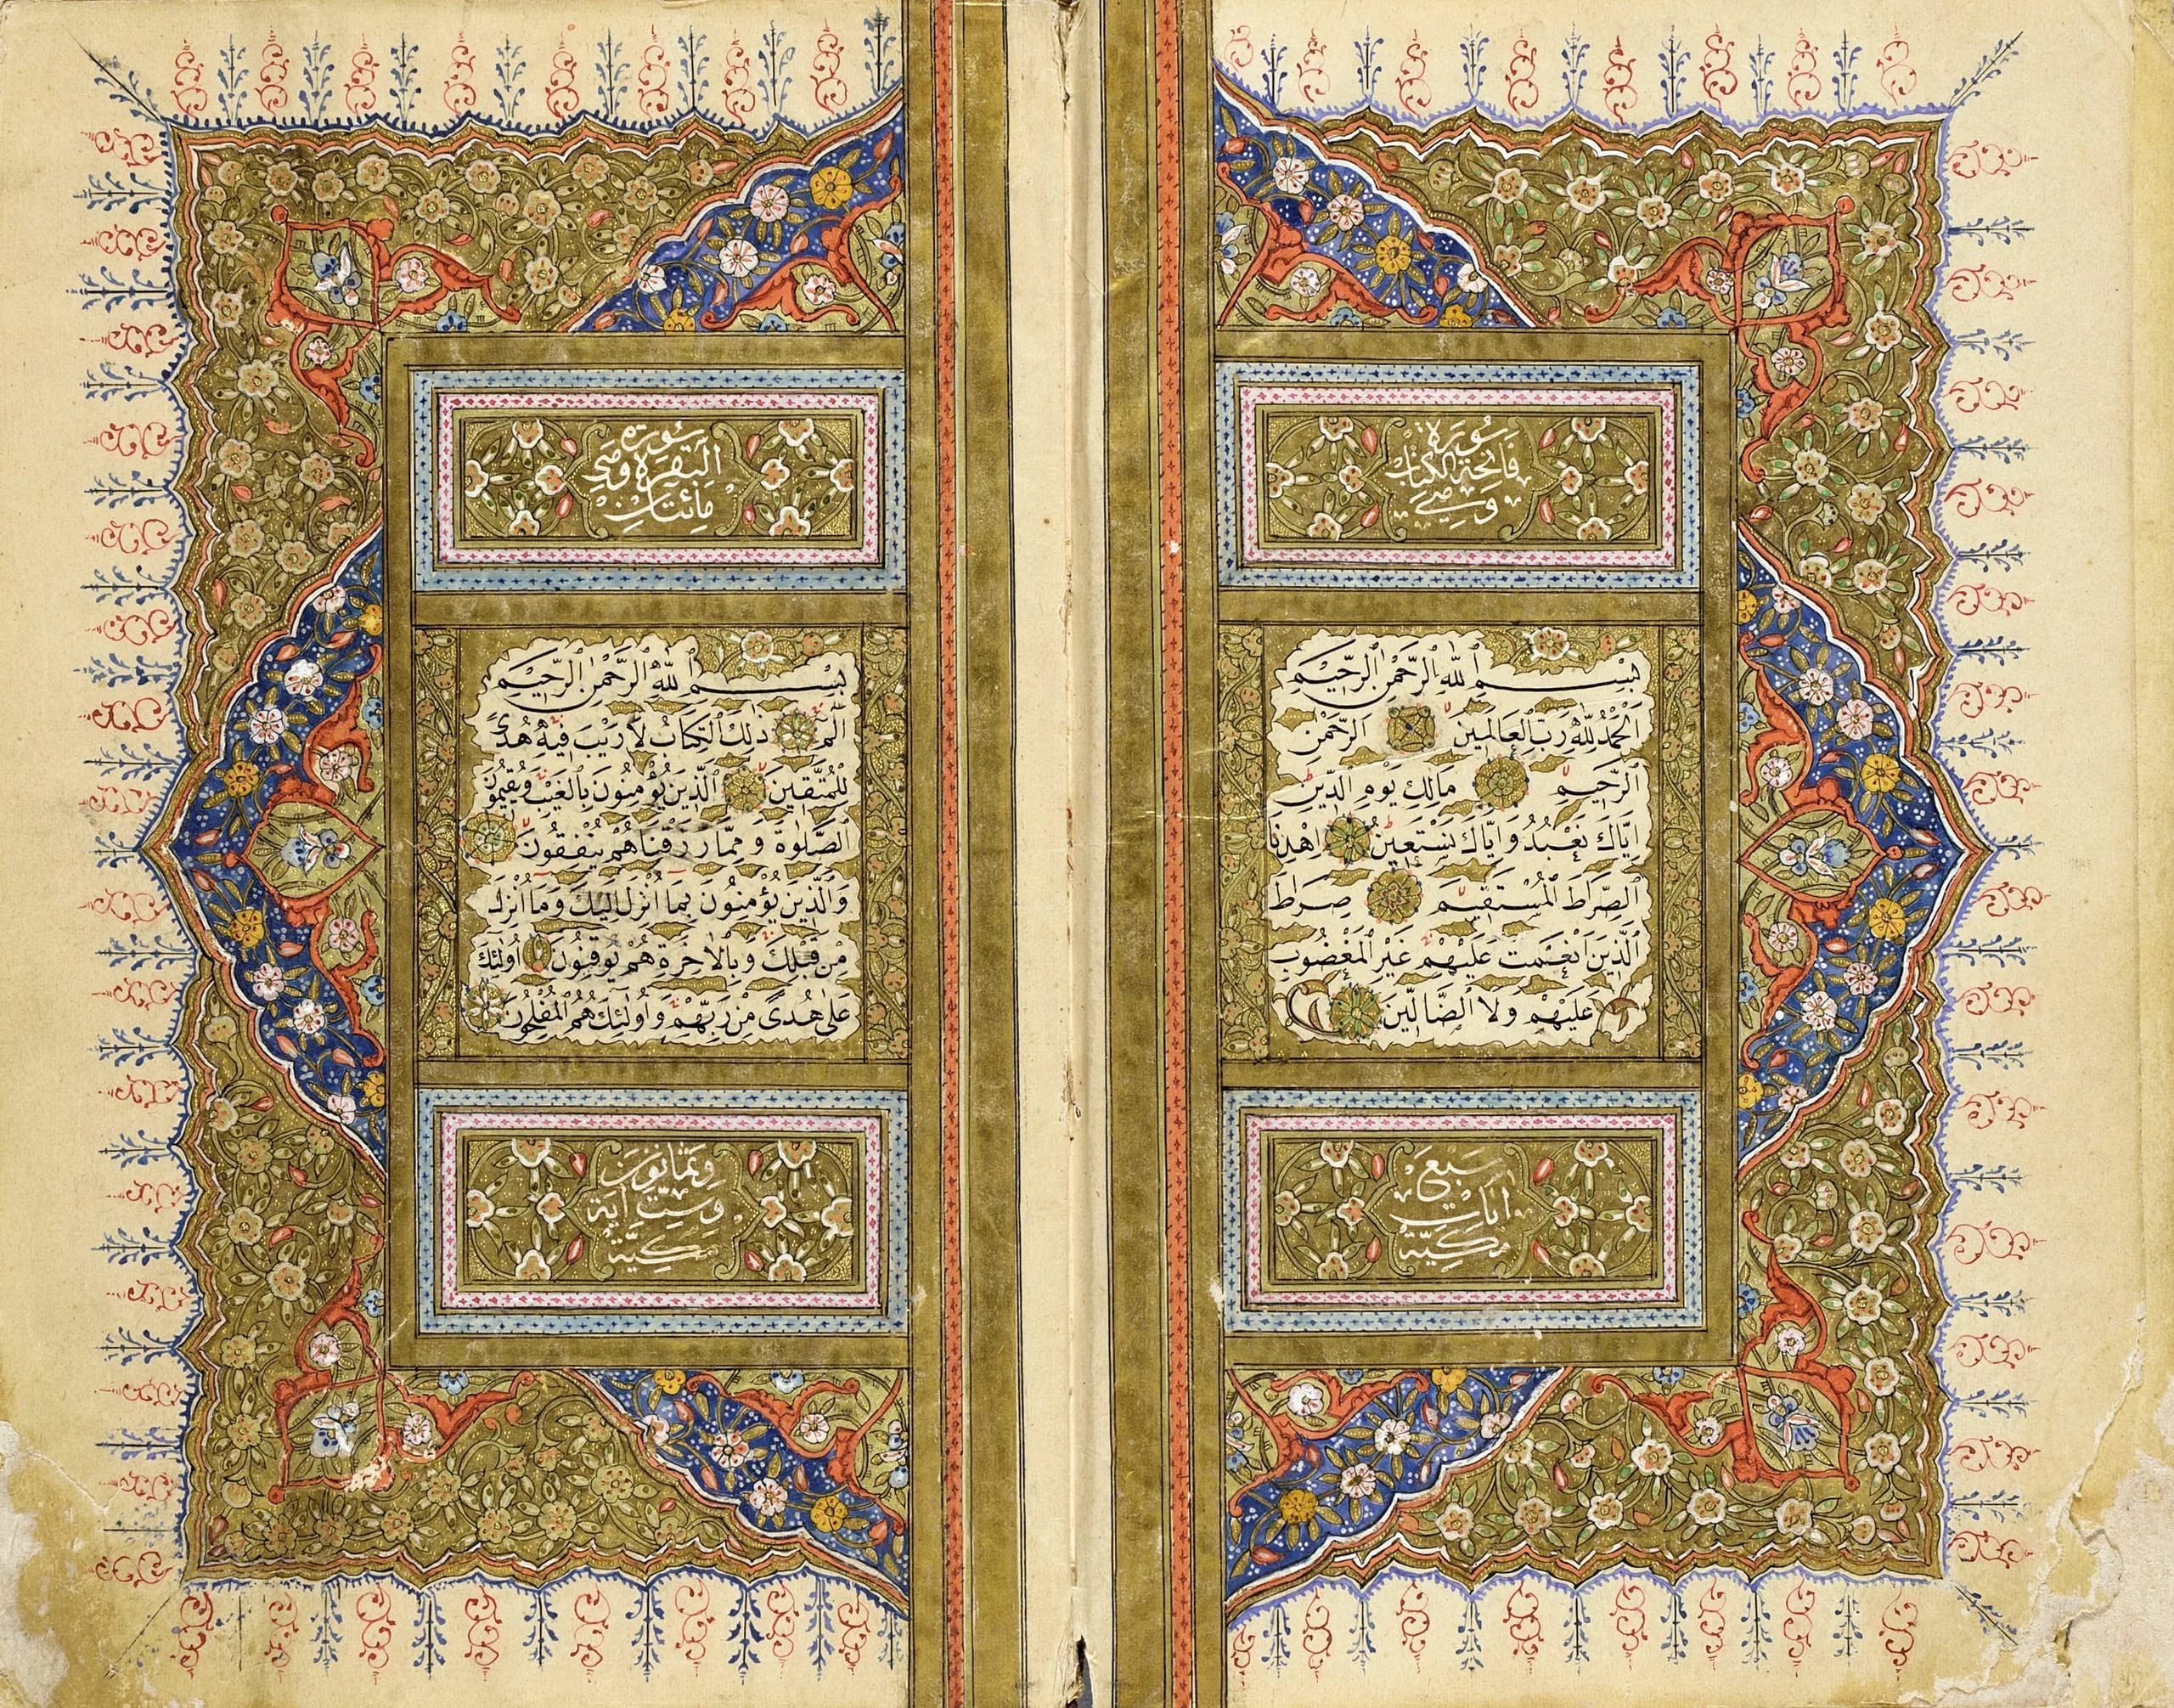 سُورَةُ
فَاتِحَةِ الْكِتَابِ
وَهِيَ
بِسْمِ اللّٰهِ الرَّحْمٰنِ الرَّحِيمِ
اَلْحَمْدُ لِلّٰهِ رَبِّ الْعَالَمِينَ اَلرَّحْمٰنِ
الرَّحِيمِ مَالِكِ يَوْمِ الدِّينِ
اِيَّاكَ نَعْبُدُ وَاِيَّاكَ نَسْتَعِينُ اِهْدِنَا
الصِّرَاطَ الْمُسْتَقِيمَ صِرَاطَ
الَّذِينَ اَنْعَمْتَ عَلَيْهِمْ غَيْرِ الْمَغْضُوبِ
عَلَيْهِمْ وَلَا الضَّالِّينَ
سَبْعَ
اٰيَاتٍ
مَكِّيَّةٌ
سُورَةُ
الْبَقَرَةِ وَهِيَ
مِائَتَانِ
بِسْمِ اللّٰهِ الرَّحْمٰنِ الرَّحِيمِ
الٓمٓ ذٰلِكَ الْكِتَابُ لَا رَيْبَ فِيهِ هُدًى
لِلْمُتَّقِينَ اَلَّذِينَ يُؤْمِنُونَ بِالْغَيْبِ وَيُقِيمُونَ
الصَّلٰوةَ وَمِمَّا رَزَقْنَاهُمْ يُنْفِقُونَ
وَالَّذِينَ يُؤْمِنُونَ بِمَا اُنْزِلَ اِلَيْكَ وَمَا اُنْزِلَ
مِنْ قَبْلِكَ وَبِالْاٰخِرَةِ هُمْ يُوقِنُونَ اُولٰئِكَ
عَلٰى هُدًى مِنْ رَبِّهِمْ وَاُولٰئِكَ هُمُ الْمُفْلِحُونَ
وَثَمَانُونَ
وَسِتُّ اٰيَةٍ
مَكِّيَّةٌ